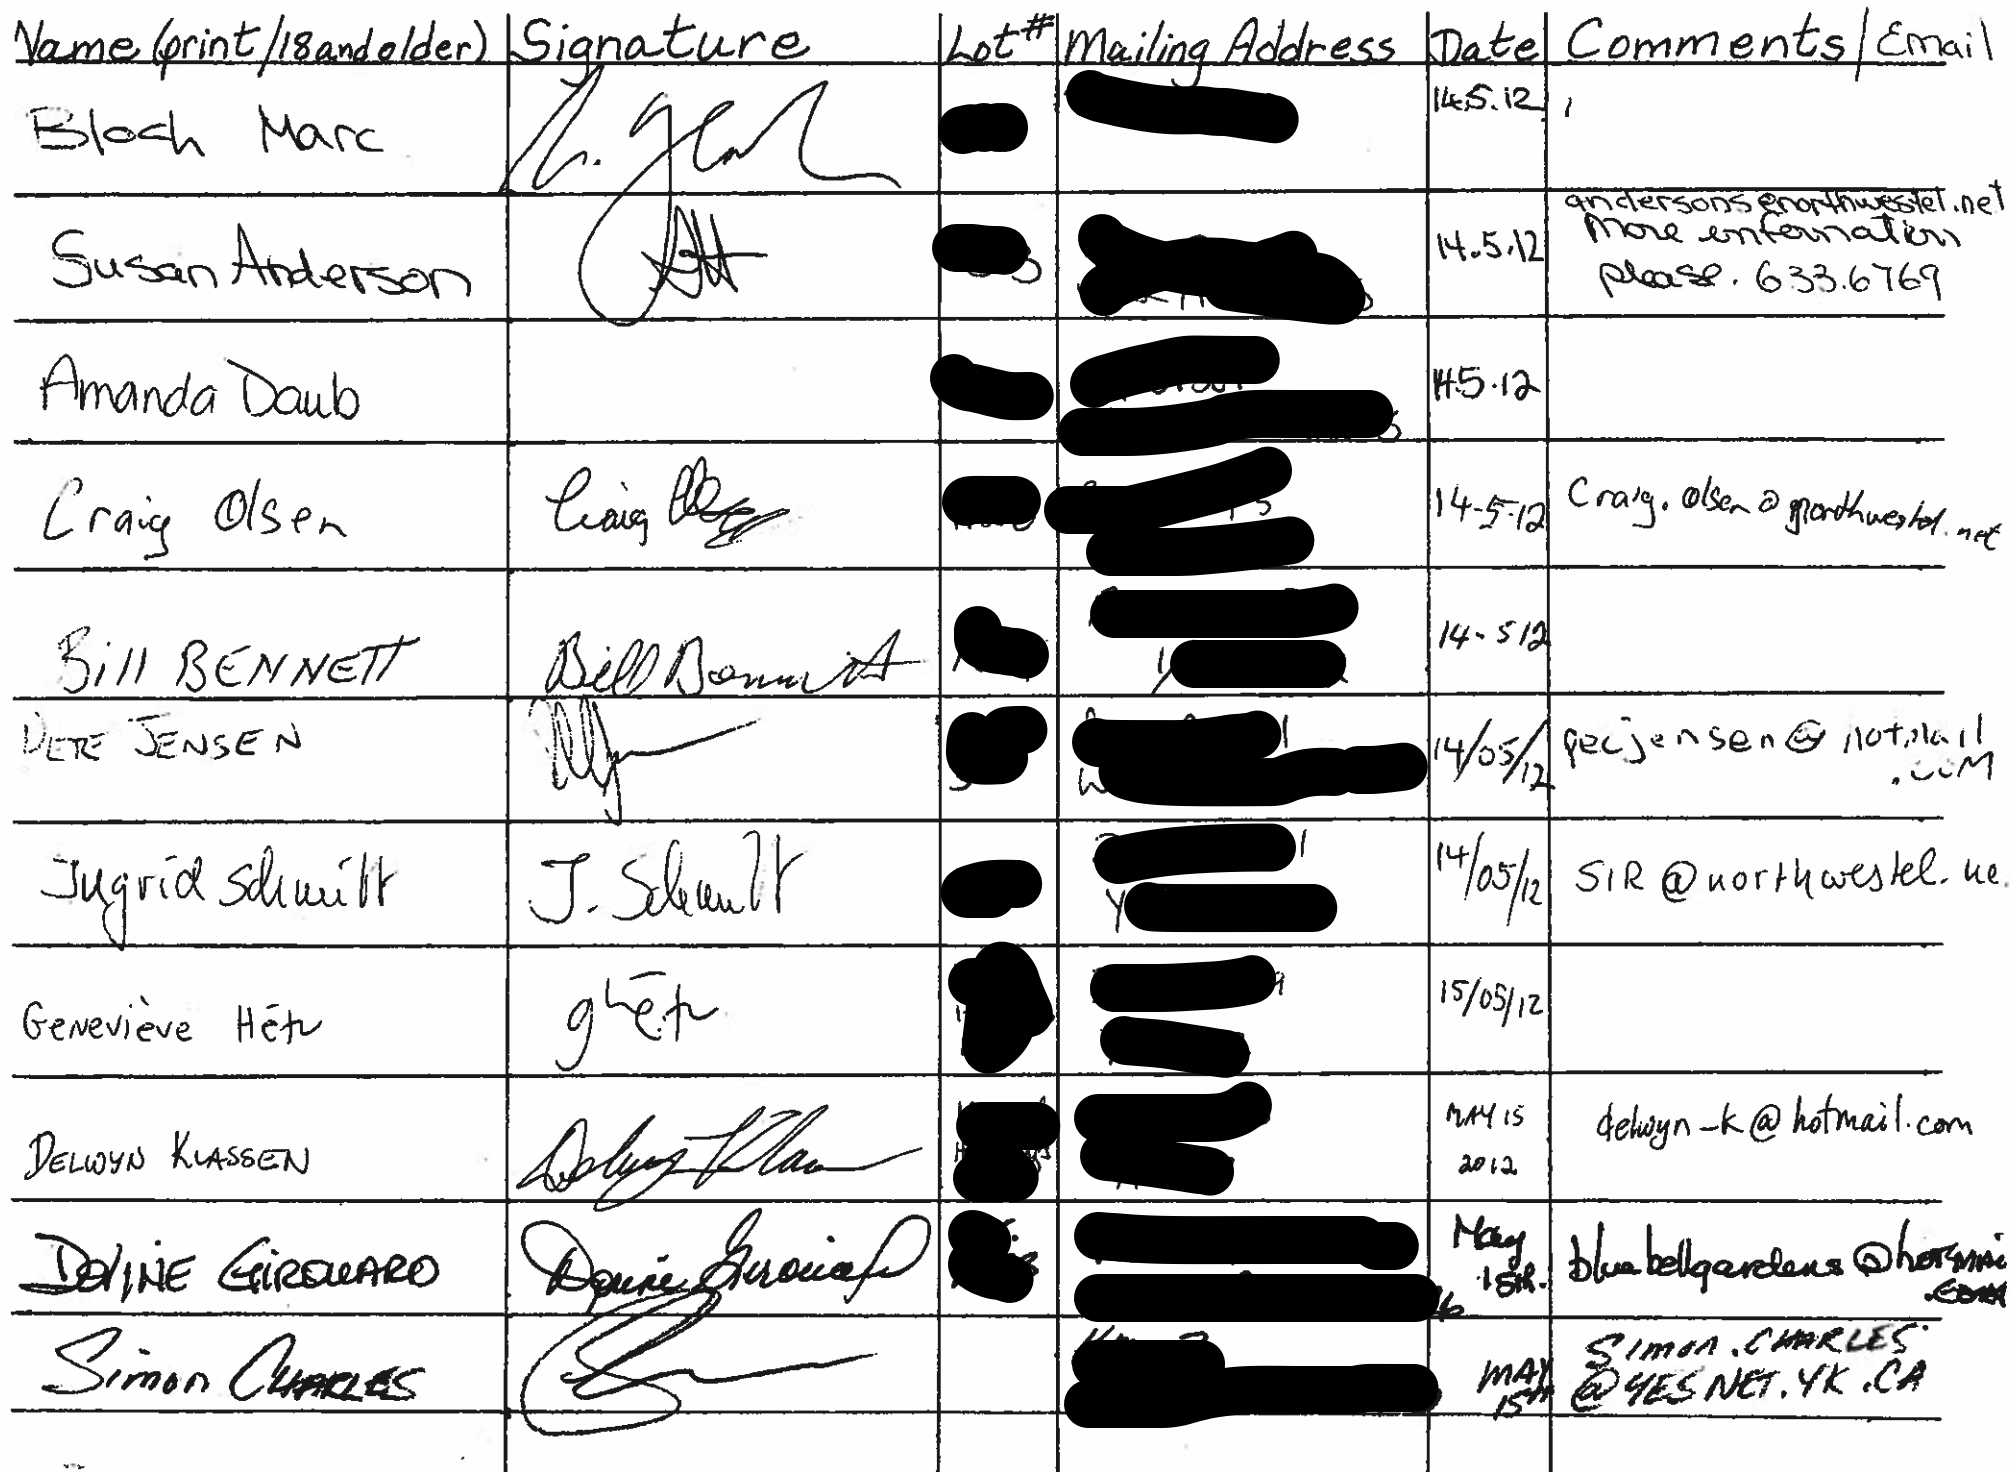 Name (print/18 and older) Signature Lot # Mailing Address Date Comments/Email
Bloch Marc 14.5.12
Susan Anderson 14.5.12 andersons@northwestel.net
More information
please. 633.6769
Amanda Daub 14.5.12
Craig Olsen Craig 14-5-12 Craig.Olsen@northwestel.net
Bill BENNETT Bill Bennett 14-5 12
PETE JENSEN 14/05/12 @hotmail
.COM
Ingrid Schmitt I. Schmitt 14/05/12 SIR@northwestel.ne
Geneviève 15/05/12
DELWYN KLASSEN Delwyn Klassen MAY 15
2012 delwyn-k@hotmail.com
DORINE GIROUARD Dorine Girouard May
15th. bluebellgardens@hotmai
.com
Simon CHARLES MAY
15th Simon.CHARLES
@YESNET.YK.CA